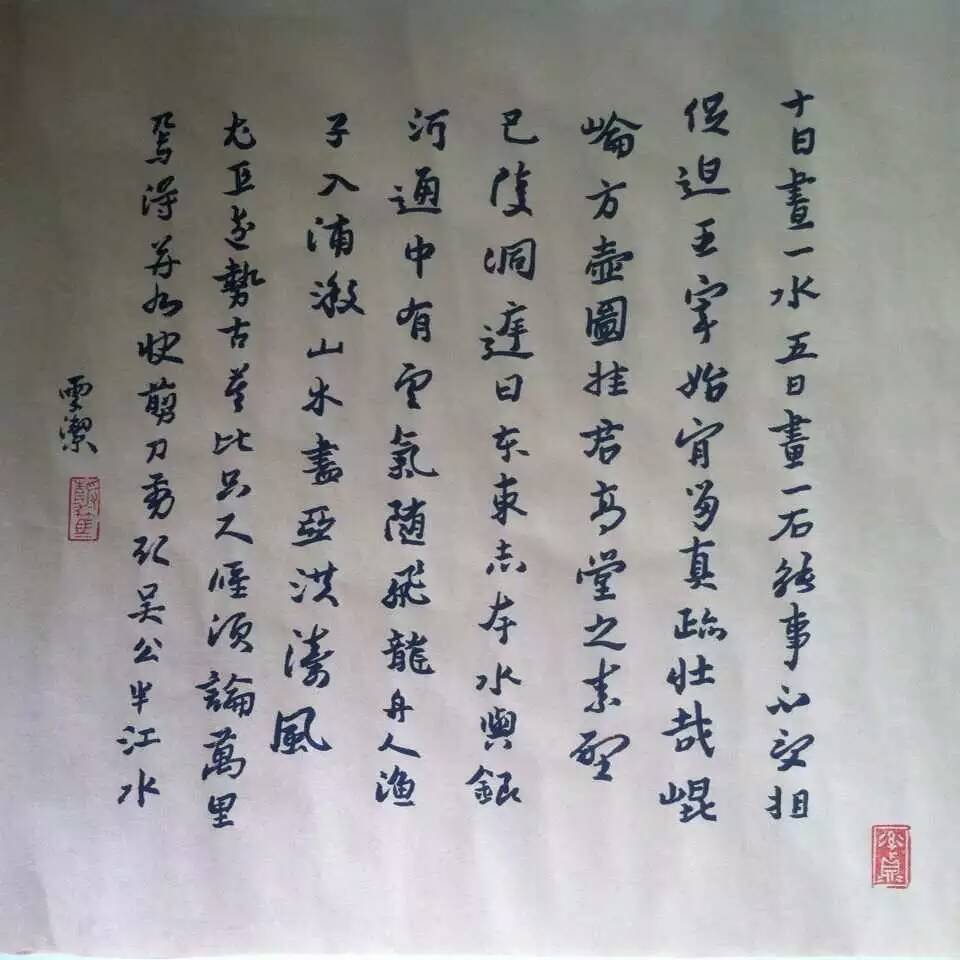 十日畫一水五日畫一石能事不受相
促迫王宰始肯留真跡壯哉崐
崘方壺圖挂君高堂之素壁
巴陵洞庭日本東赤岸水與銀
河通中有雲氣随飛龍舟人漁
子入浦溆山木盡亞洪濤風
尤工遠勢古莫比咫尺應須論萬里
焉得并州快剪刀剪取吴公半江水
雪潔